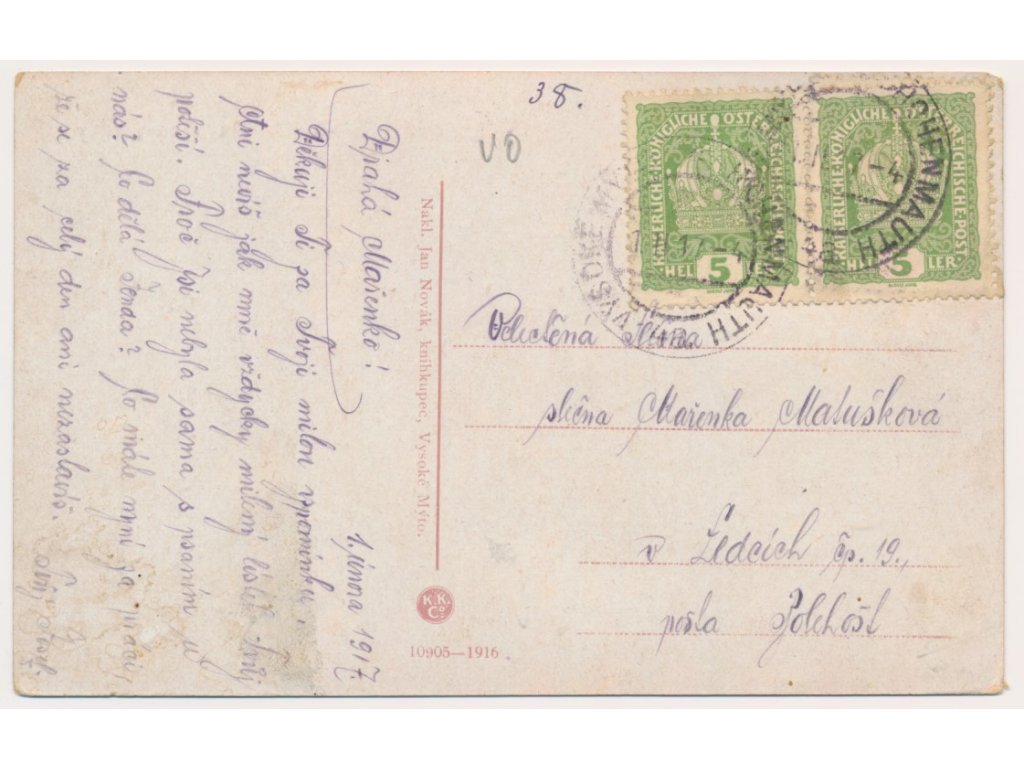 38.
VO
1. února 1917.
Drahá Mařenko!
Děkuji Ti za Tvoji milou vzpomínku.
ani nevíš jak mně vždycky milený lístek Tvůj
potěší. Proč jsi nebyla sama s psaním u
nás? Co dělá Ženda? Co máte nyní za práci,
že se za celý den ani nezastavíš.
Nakl. Jan Novák, knihkupec, Vysoké Mýto.
K.K.
Co
10905—1916
KAISERLICHE KÖNIGLICHE ÖSTERREICHISCHE POST
5
HELLER
KAISERLICHE KÖNIGLICHE ÖSTERREICHISCHE POST
5
HELLER
HOHENMAUTH
VYSOKÉ MÝTO
Velectěná slečna
slečna Mařenka Matušková
v Ledcích čp. 19.,
pošta Bolehošť